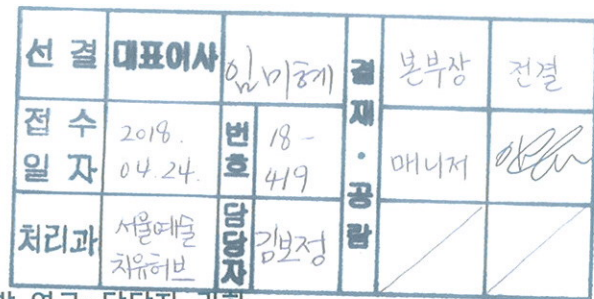 선 결 대표이사 임미혜 결재·공람 본부장 전결
접수일자 2018. 04.24. 번호 18-419 매니저
처리과 서울예술치유허브 담당자 김보정